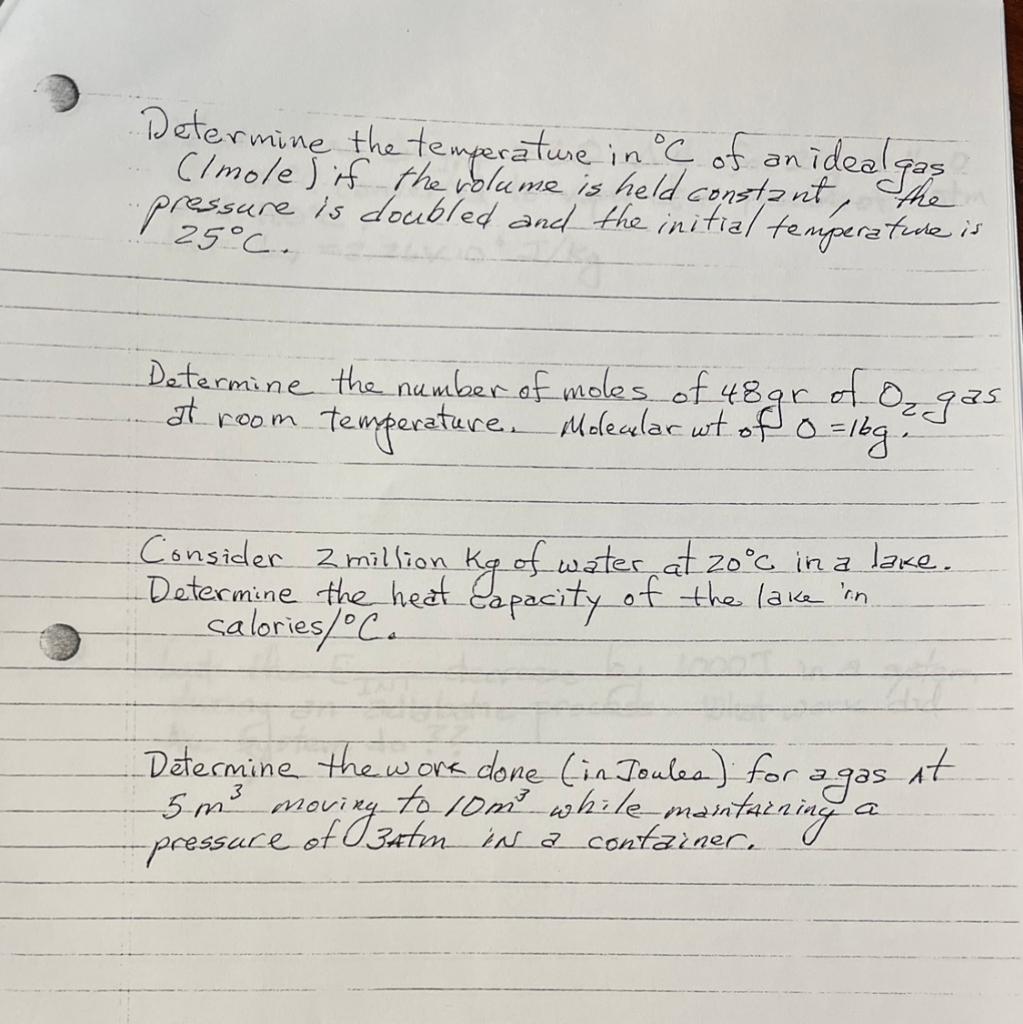 Determine the temperature in °C of an ideal gas
(1mole) if the volume is held constant, the
pressure is doubled and the initial temperature is
25°C.
Determine the number of moles of 48gr of O₂ gas
at room temperature. Molecular wt of O = 16g.
Consider 2 million Kg of water at 20°C in a lake.
Determine the heat capacity of the lake in
calories/°C.
Determine the work done (in Joules) for a gas at
5 m³ moving to 10m³ while maintaining a
pressure of 3Atm in a container.